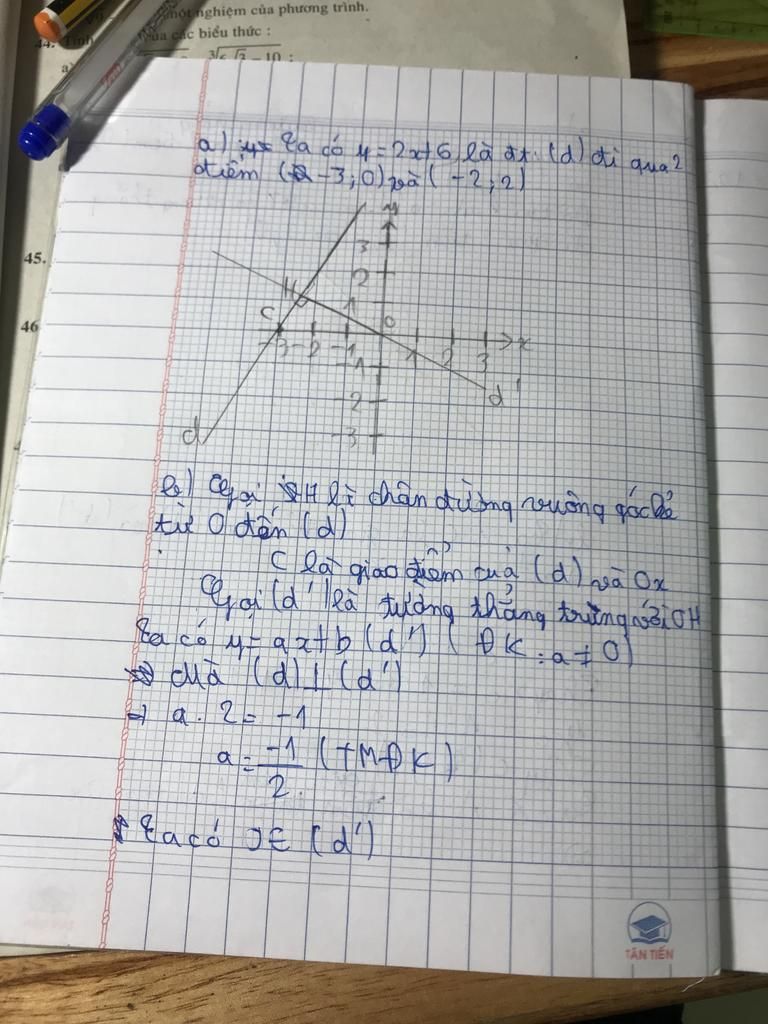 một nghiệm của phương trình.
44. Tính của các biểu thức :
45.
46
a) Ta có y = 2x+6 là đt (d) đi qua 2
điểm (-3;0) và (-2;2)
y
3
2
H
1
C
0
-3 -2 -1 1 2 3 x
-1
d'
-2
d
-3
b) Gọi H là chân đường vuông góc kẻ
từ O đến (d)
C là giao điểm của (d) và Ox
Gọi (d') là tường thẳng trùng với OH
Ta có y = ax+b (d') (ĐK: a ≠ 0)
Mà (d) ⊥ (d')
⇒ a. 2 = -1
a = -1/2 (TMĐK)
Ta có O ∈ (d')
TÂN TIẾN